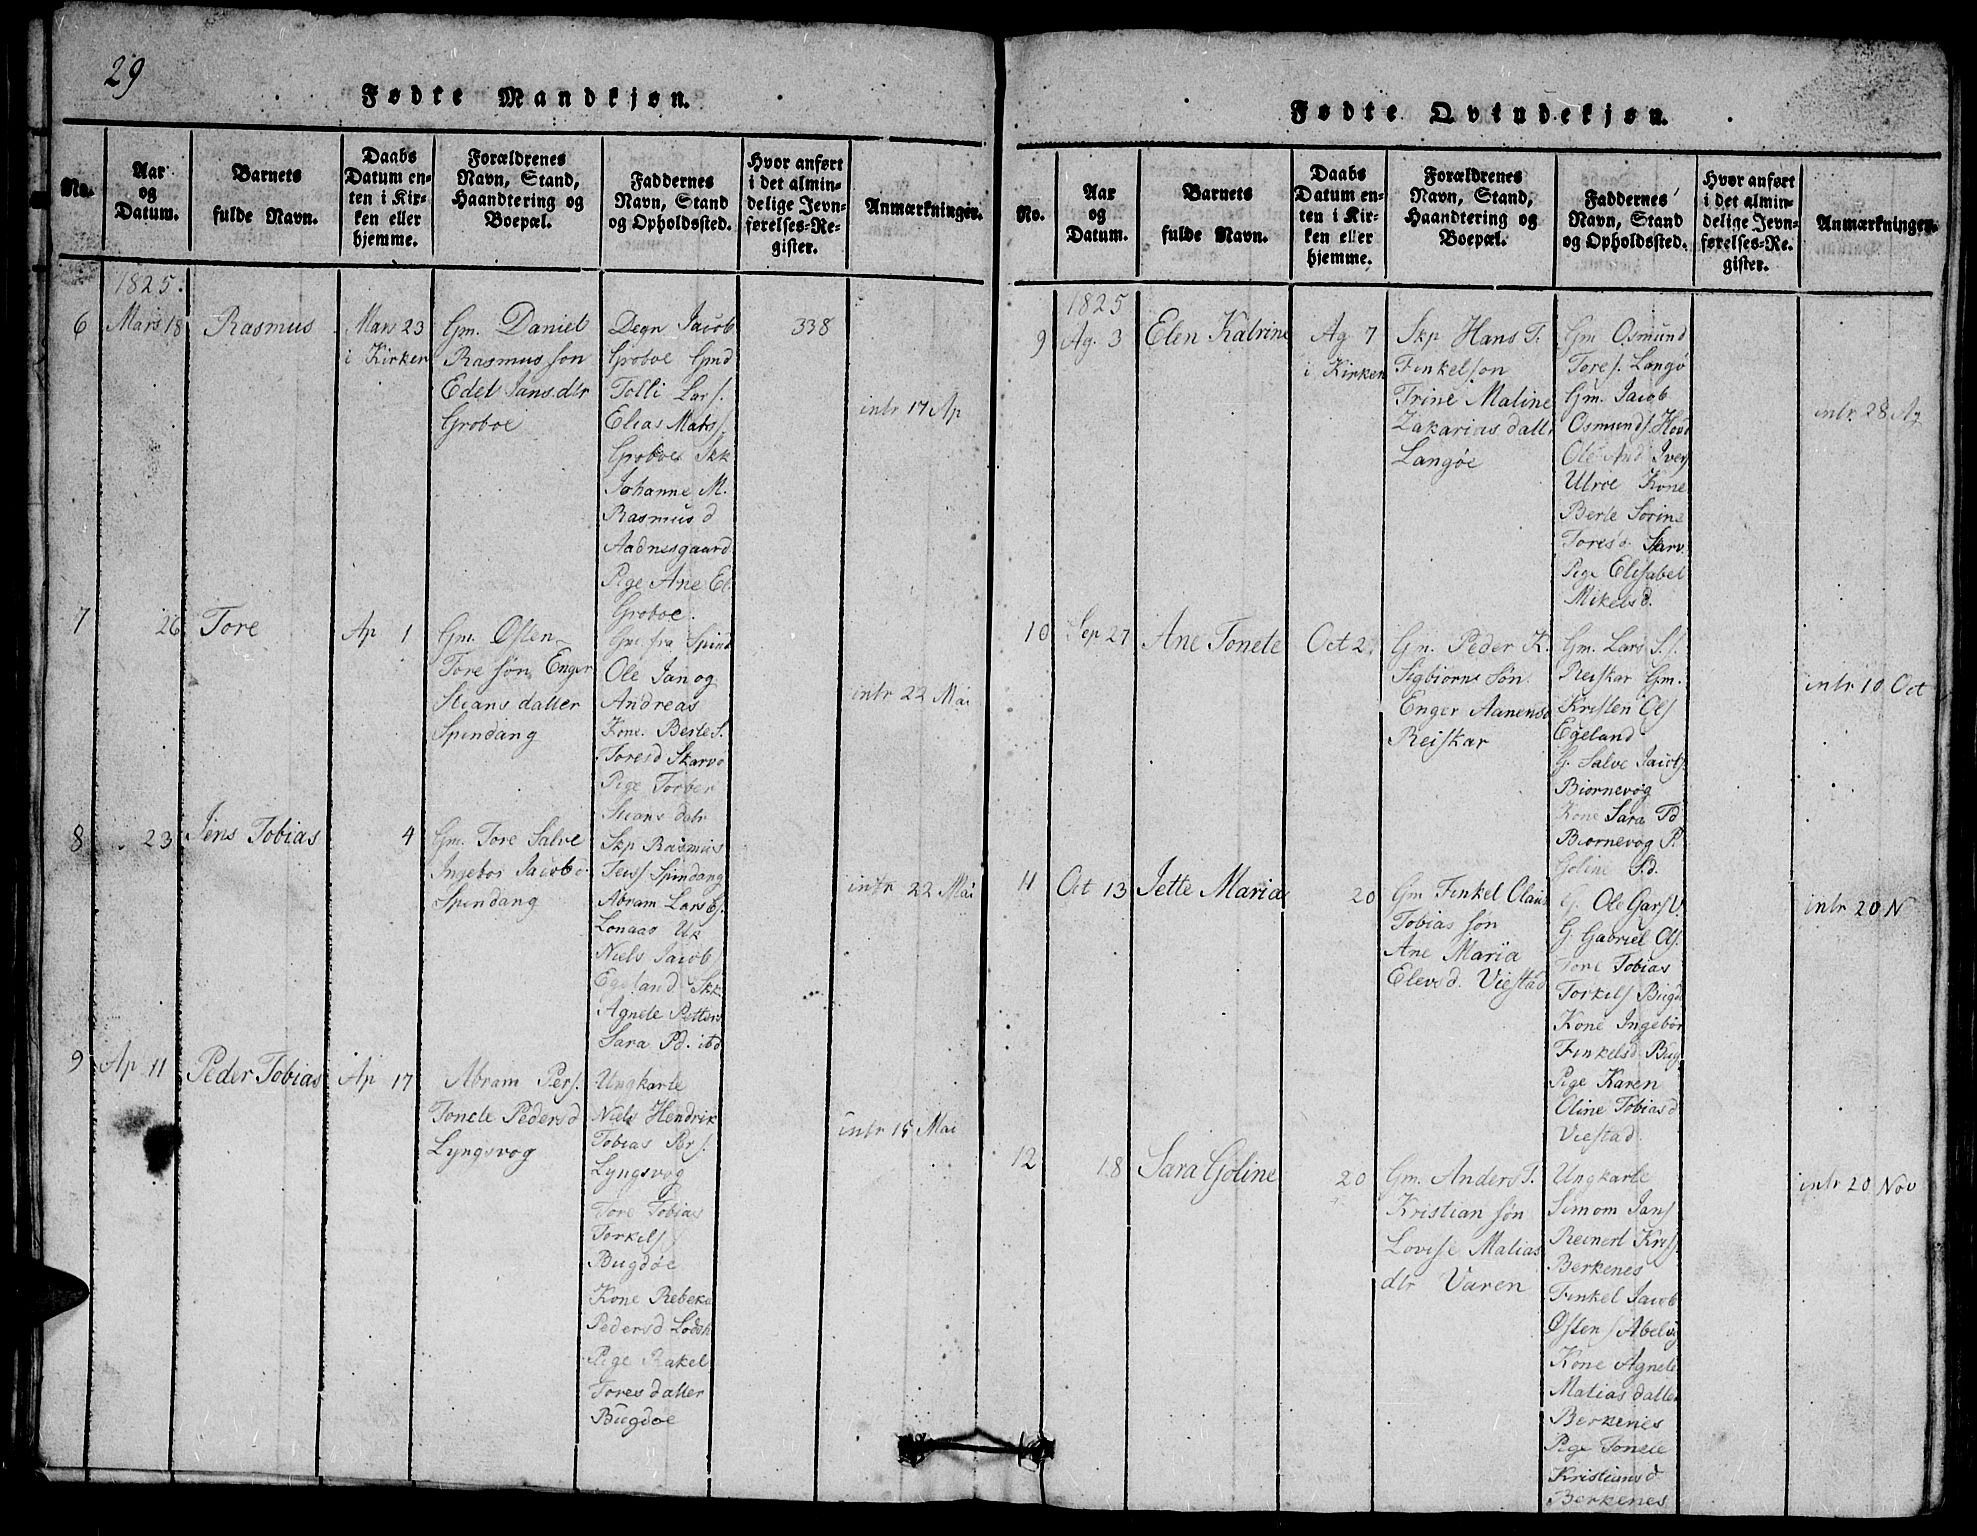 29
Fødte Mandkjøn.
No.
Aar
og
Datum.
Barnets
fulde Navn.
Daabs
Datum en-
ten i Kir-
ken eller
hjemme.
Forældrenes
Navn, Stand,
Haandtering og
Boepæl.
Faddernes
Navn, Stand
og Opholdssted.
Hvor anført
i det almin-
delige Jevn-
førelses-Re-
gister.
Anmærkninger.
1825.
6
Mars 18
Rasmus
Mars 23
i Kirken
Gm. Daniel
Rasmus søn
Edel Jans.dtr
Groboe
Degn Jacob
Groboe Gmd
Tolli Lars.
Elias Mats.
Groboe Skk
Johanne M.
Rasmus d
Aadnesgaard
Pige Ane El.
Groboe
338
intr 17 Ap
7
26
Tore
Ap 1
Gm. Østen
Tore søn Enger
Stians datter
Spindang
Gm. fra Spind
Ole Jan og
Andreas
Kone. Berte S.
Toresd Skarvo
Pige Torber
Stians datr
intr 22 Mai
8
23
Jens Tobias
4
Gm. Tore Salve
Ingebor Jacobd
Spindang
Skp Rasmus
Jens. Spindang
Abram Lars
Lonaas Uk
Niels Jacob
Egeland Skk
Agnete Petters
Sara Pd. ibd
intr 22 Mai
9
Ap 11
Peder Tobias
Ap 17
Abram Pers.
Tonete Pedersd
Lyngsvog
Ungkarle
Niels Hendrik
Tobias Per s.
Lyngsvog
Tore Tobias
Torkils
Bugdøe
Kone Rebeka
Pedersd Lodsh
Pige Rakel
Tores datter
Bugdøe
intr 15 Mai
Fødte Qvindekjøn.
No.
Aar
og
Datum.
Barnets
fulde Navn.
Daabs
Datum en-
ten i Kir-
ken eller
hjemme.
Forældrenes
Navn, Stand,
Haandtering og
Boepæl.
Faddernes
Navn, Stand
og Opholdssted.
Hvor anført
i det almin-
delige Jevn-
førelses-Re-
gister.
Anmærkninger.
1825
9
Ag. 3
Elen Katrine
Ag 7
i Kirken
Skp Hans T.
Finkelson
Trine Maline
Zakarias datt
Langøe
Gm Osmund
Tores. Langø
Gm. Jacob
Osmunds. Hove
Ole And Ivers
Ulroe Kone
Berte Sorine
Toresd Skarv
Pige Elisabet
Mikelsd.
intr 28 Ag
10
Sep 27
Ane Tonete
Oct 2
Gm. Peder K.
Sigbiorns søn
Enger Aanensd
Reiskar
Gm. Lars S.s.
Reiskar Gm.
Kristen Ols
Egeland
G. Salve Jacobs.
Biornevog
Kone Sara Td
Biornevog P.
Goline S.d.
intr 10 Oct
11
Oct 13
Jette Maria
20
Gm Finkel Claus
Tobias søn
Ane Maria
Elevsd. Viestad
G. Ole Gars V.
G. Gabriel Ols.
Tore Tobias
Torkils Bugd
Kone Ingebor
Finkelsd Bug
Pige Karen
Oline Tobiasd
Viestad
intr 20 N
12
18
Sara Goline
20
Gm. Anders T.
Kristian søn
Lovise Matias
dtr Varen
Ungkarle
Simom Jans
Reinert Kris.
Berkenes
Finkel Jacob
Østen s Abelvig
Kone Agnete
Matias datter
Berkenes
Pige Tonete
Kristiansd
Berkenes
intr 20 Nov